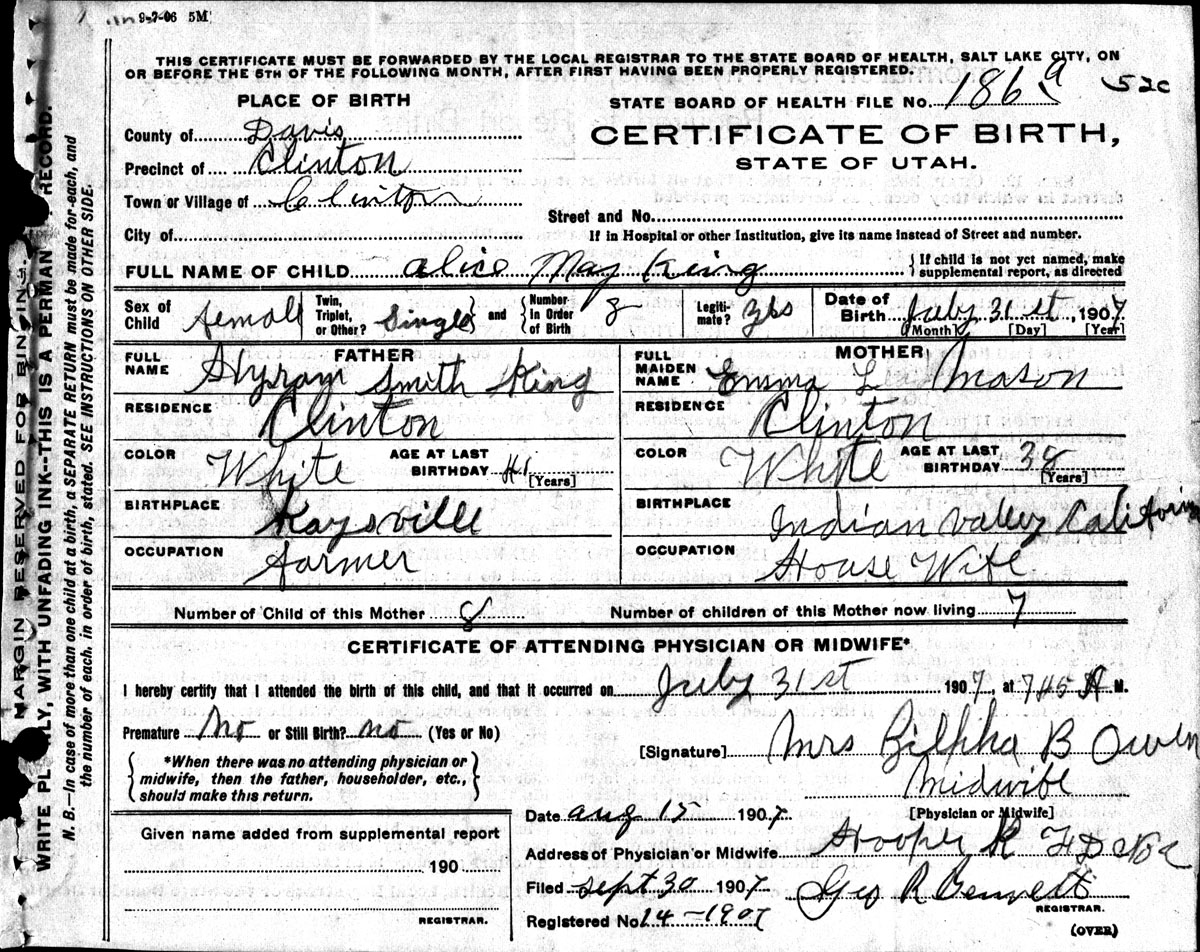 9-7-06 5M
THIS CERTIFICATE MUST BE FORWARDED BY THE LOCAL REGISTRAR TO THE STATE BOARD OF HEALTH, SALT LAKE CITY, ON
OR BEFORE THE 5TH OF THE FOLLOWING MONTH, AFTER FIRST HAVING BEEN PROPERLY REGISTERED.
PLACE OF BIRTH
STATE BOARD OF HEALTH FILE No. 186 a 52c
County of Davis
CERTIFICATE OF BIRTH,
Precinct of Clinton
STATE OF UTAH.
Town or Village of Clinton
Street and No.
City of
If in Hospital or other Institution, give its name instead of Street and number.
FULL NAME OF CHILD alice May King
If child is not yet named, make
supplemental report, as directed
Sex of Child Female
Twin, Triplet, or Other? Single and
Number in Order of Birth 8
Legiti-mate? Yes
Date of Birth July 31 st, 1907
[Month] [Day] [Year]
FATHER
FULL NAME Hyram Smith King
MOTHER
FULL MAIDEN NAME Emma L Mason
RESIDENCE Clinton
RESIDENCE Clinton
COLOR White AGE AT LAST BIRTHDAY 41 [Years]
COLOR White AGE AT LAST BIRTHDAY 38 [Years]
BIRTHPLACE Kaysville
BIRTHPLACE Indian Valley California
OCCUPATION Farmer
OCCUPATION House Wife
Number of Child of this Mother 8
Number of children of this Mother now living 7
CERTIFICATE OF ATTENDING PHYSICIAN OR MIDWIFE*
I hereby certify that I attended the birth of this child, and that it occurred on July 31st 1907, at 745 A M.
Premature No or Still Birth? no (Yes or No)
[Signature] Mrs Zilpha B Owen
*When there was no attending physician or
midwife, then the father, householder, etc.,
should make this return.
Midwife
[Physician or Midwife]
Date aug 15 1907.
Given name added from supplemental report
190
REGISTRAR.
Address of Physician or Midwife Hooper R F D
Filed Sept 30 1907 Geo R Bennett
REGISTRAR.
Registered No 14-1907
(OVER)
MARGIN RESERVED FOR BINDING.
WRITE PL NLY, WITH UNFADING INK--THIS IS A PERMAN RECORD.
N. B.—In case of more than one child at a birth, a SEPARATE RETURN must be made for each, and
the number of each, in order of birth, stated. SEE INSTRUCTIONS ON OTHER SIDE.